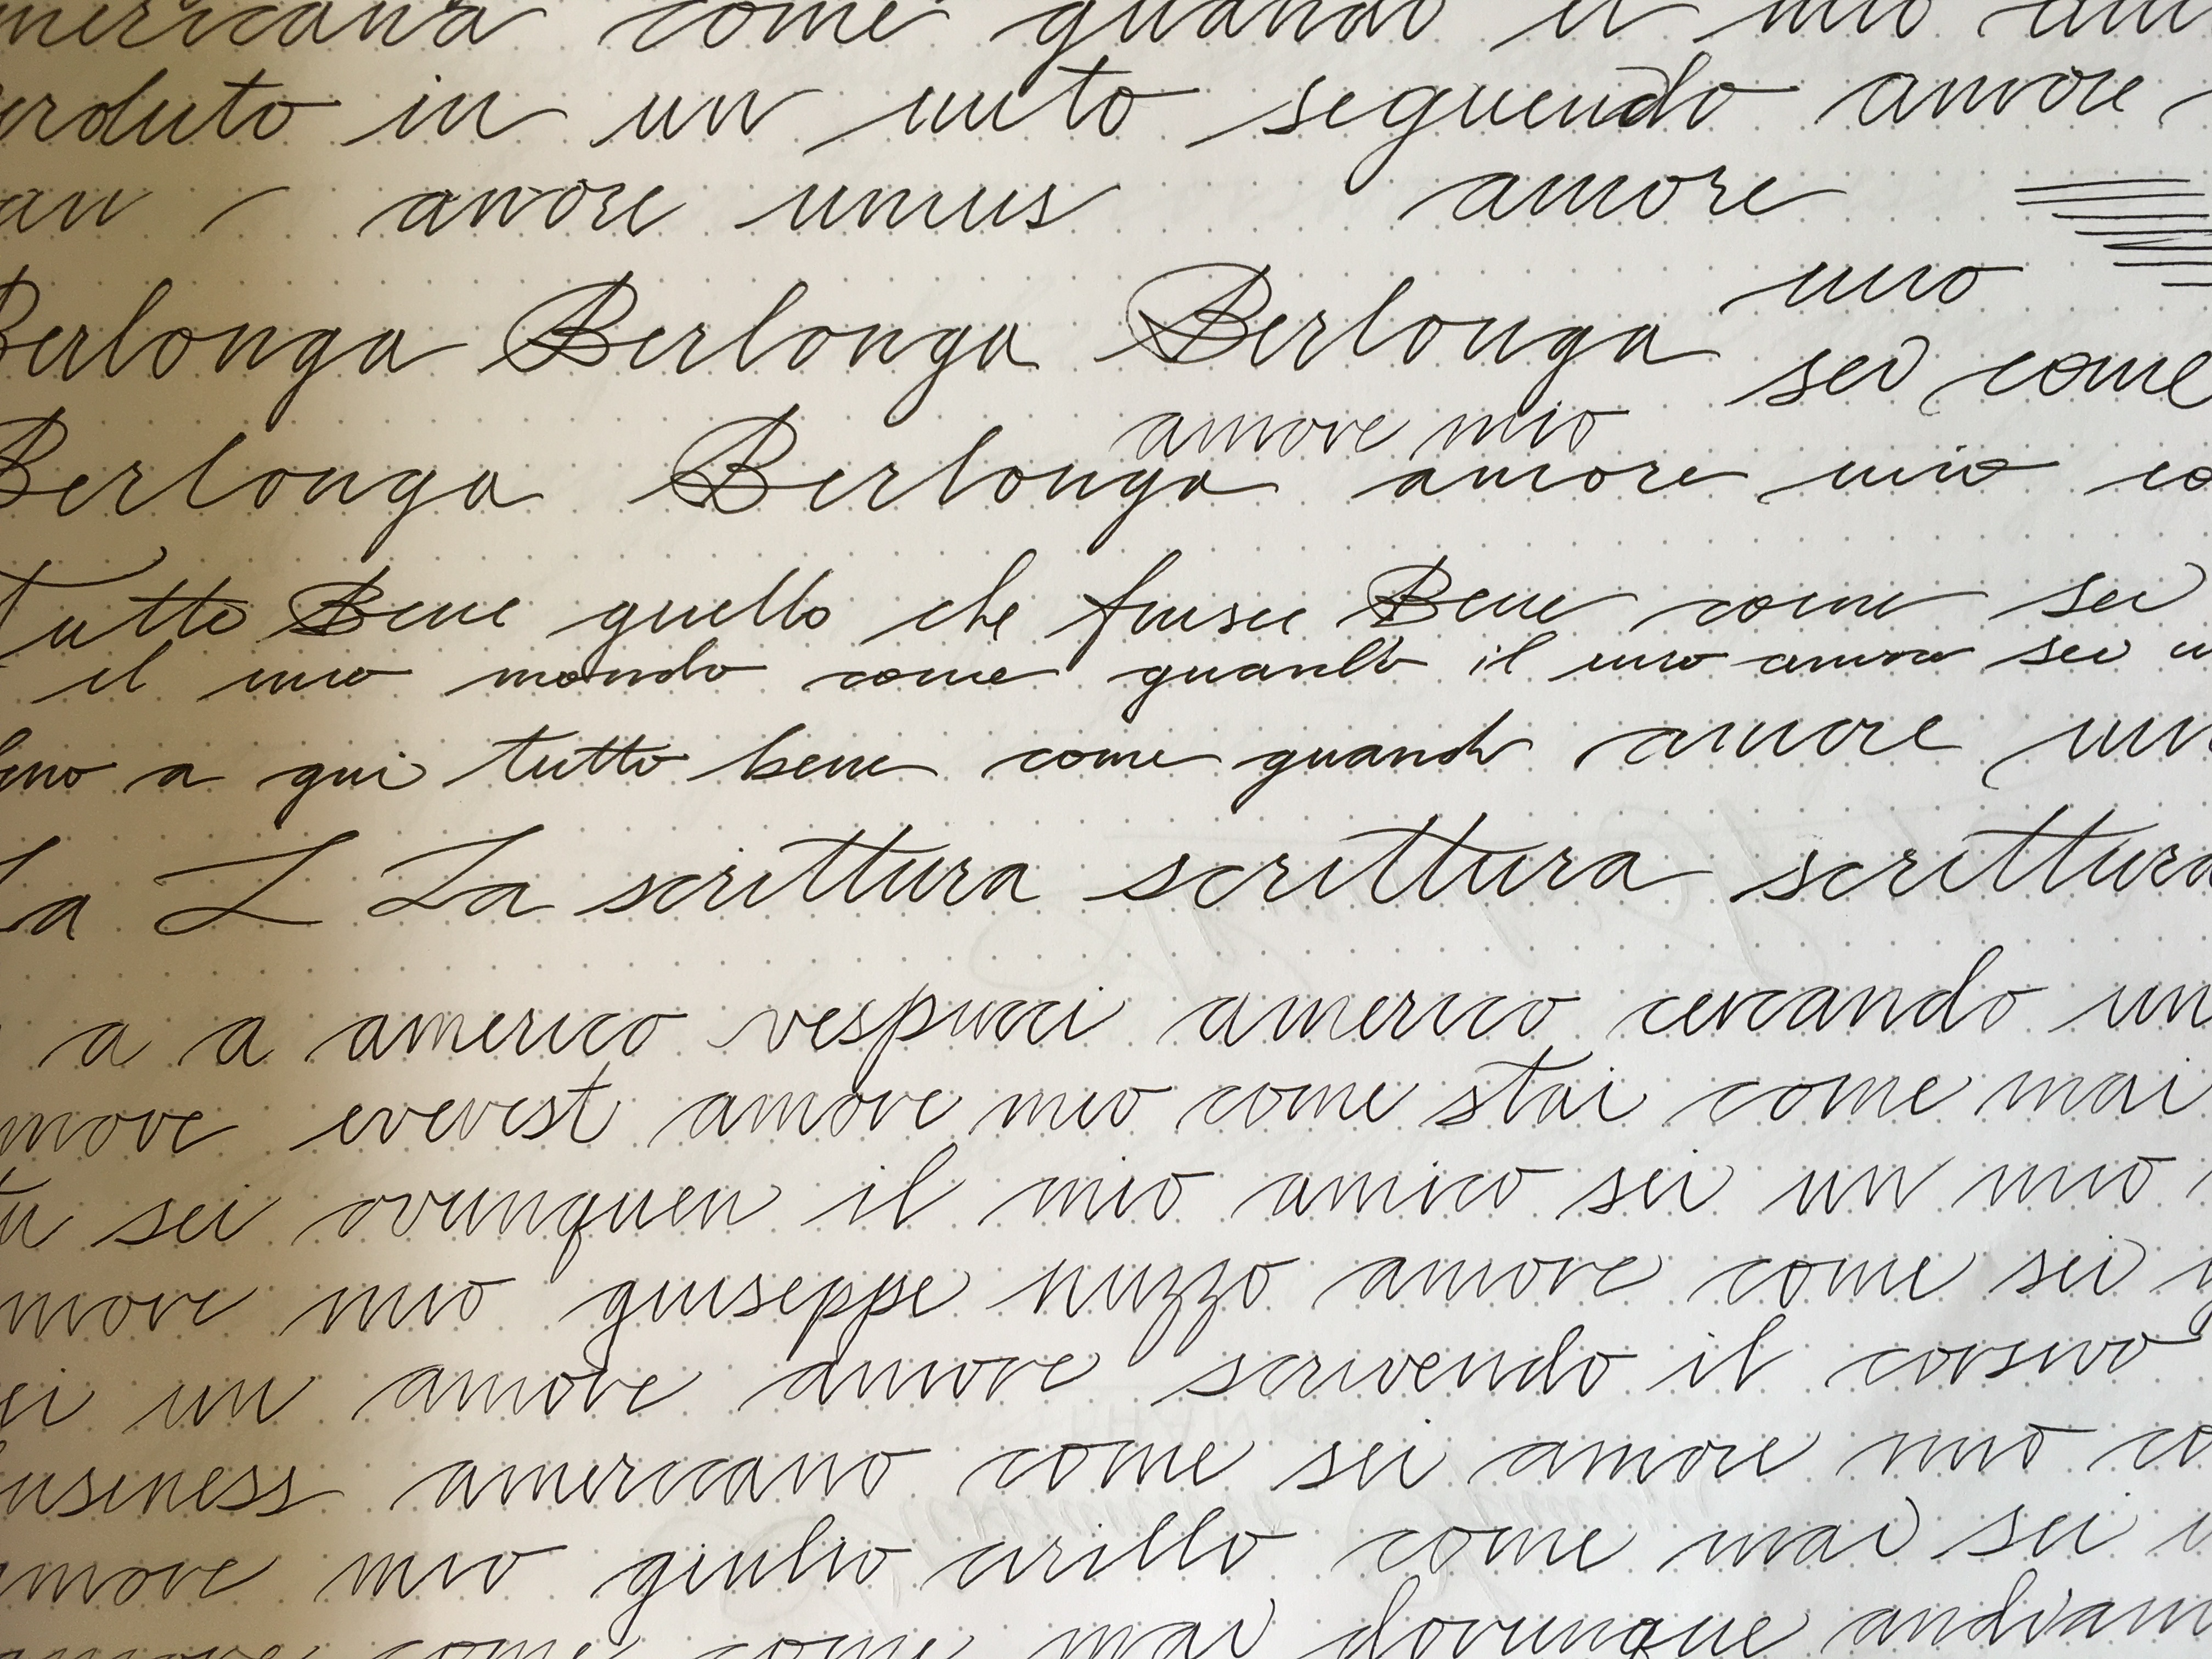 americana come quando il mio
in un seguendo amore
amore unus amore
uno
Berlonga Berlonga Berlonga
sei come
amore mio
Berlonga Berlonga amore mio co
Tutto Bene quello che finisce Bene come sei
il mio mondo come quando il mio amore sei
a qui tutto bene come quando amore un
La L La scrittura scrittura scrittura
a a americo vespucci americo cercando un
amore everest amore mio come stai come mai
tu sei ovunquen il mio amico sei un mio
amore mio giuseppe nuzzo amore come sei
sei un amore amore scrivendo il corsivo
business americano come sei amore mio co
amore mio giulio cirillo come mai sei
amore come come mai dovunque andiam